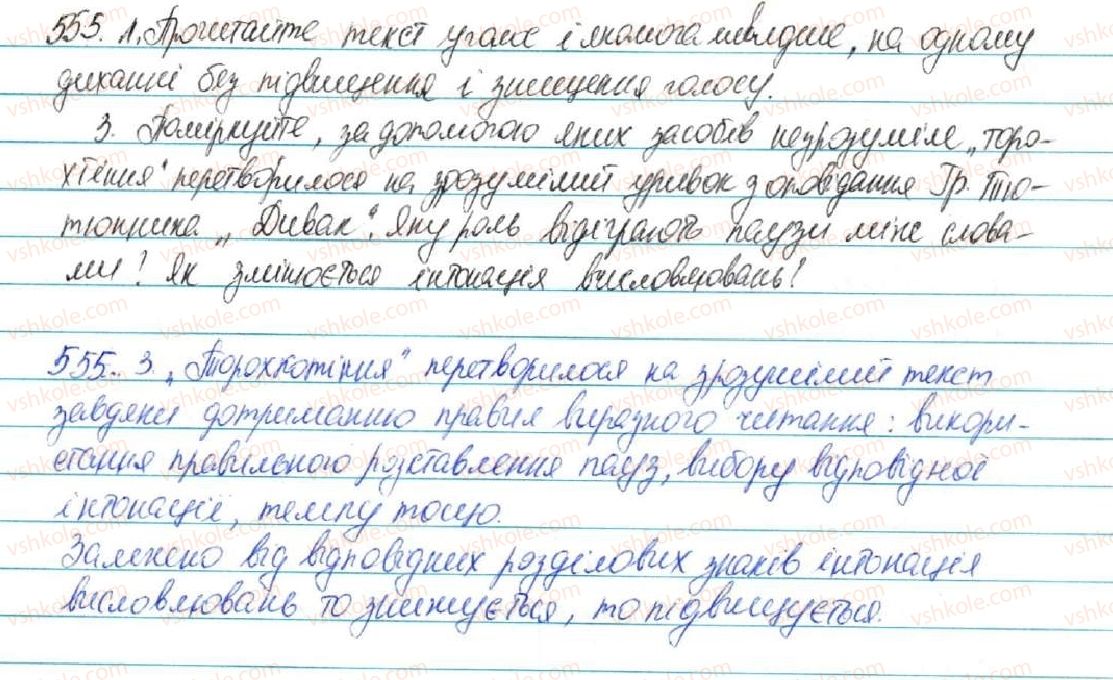 555. 1. Прочитайте текст уголос і якомога швидше, на одному
диханні без підвищення і зниження голосу.
3. Поміркуйте, за допомогою яких засобів незрозуміле „торо-
хтіння" перетворилося на зрозумілий уривок з оповідання Гр. Тю-
тюнника „Дивак". Яку роль відіграють паузи між слова-
ми? Як змінюється інтонація висловлювань?
555. 3. „Торохкотіння" перетворилося на зрозумілий текст
завдяки дотриманню правил виразного читання: викори-
стання правильного розставлення пауз, вибору відповідної
інтонації, темпу тощо.
Залежно від відповідних розділових знаків інтонація
висловлювань то знижується, то підвищується.
vshkole.com